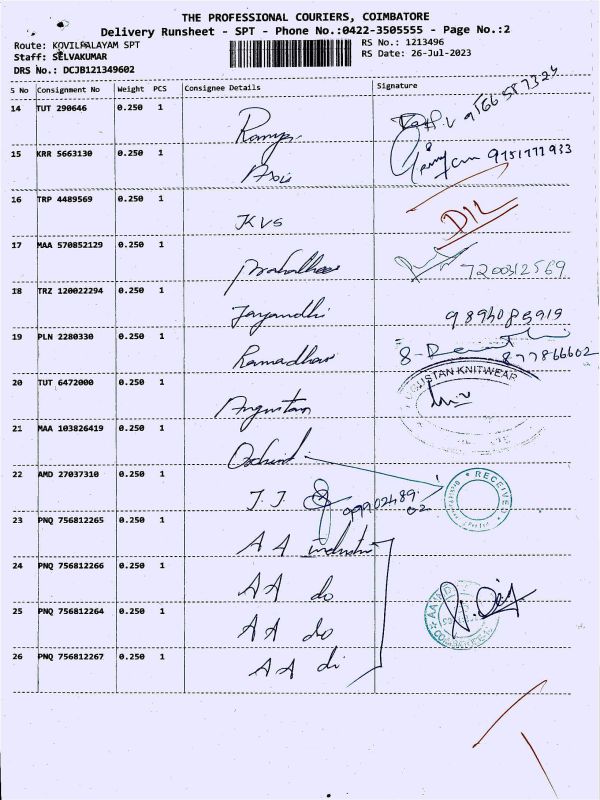 THE PROFESSIONAL COURIERS, COIMBATORE
Delivery Runsheet - SPT - Phone No.:0422-3505555 - Page No.:2
Route: KOVILPALAYAM SPT
RS No.: 1213496
Staff: SELVAKUMAR
RS Date: 26-Jul-2023
DRS No.: DCJB121349602
S No Consignment No Weight PCS Consignee Details Signature
14 TUT 290646 0.250 1 Ramya
15 KRR 5663130 0.250 1 9751777933
16 TRP 4489569 0.250 1 KVS D/L
17 MAA 570852129 0.250 1 7200312569
18 TRZ 120022294 0.250 1 Jayandhi
19 PLN 2280330 0.250 1 Ramadhas
20 TUT 6472000 0.250 1 Angustan KNITWEAR
21 MAA 103826419 0.250 1
22 AMD 27037310 0.250 1 J. J. RECEIVED
23 PNQ 756812265 0.250 1 A A industri
24 PNQ 756812266 0.250 1 A A do
25 PNQ 756812264 0.250 1 A A do
26 PNQ 756812267 0.250 1 A A di